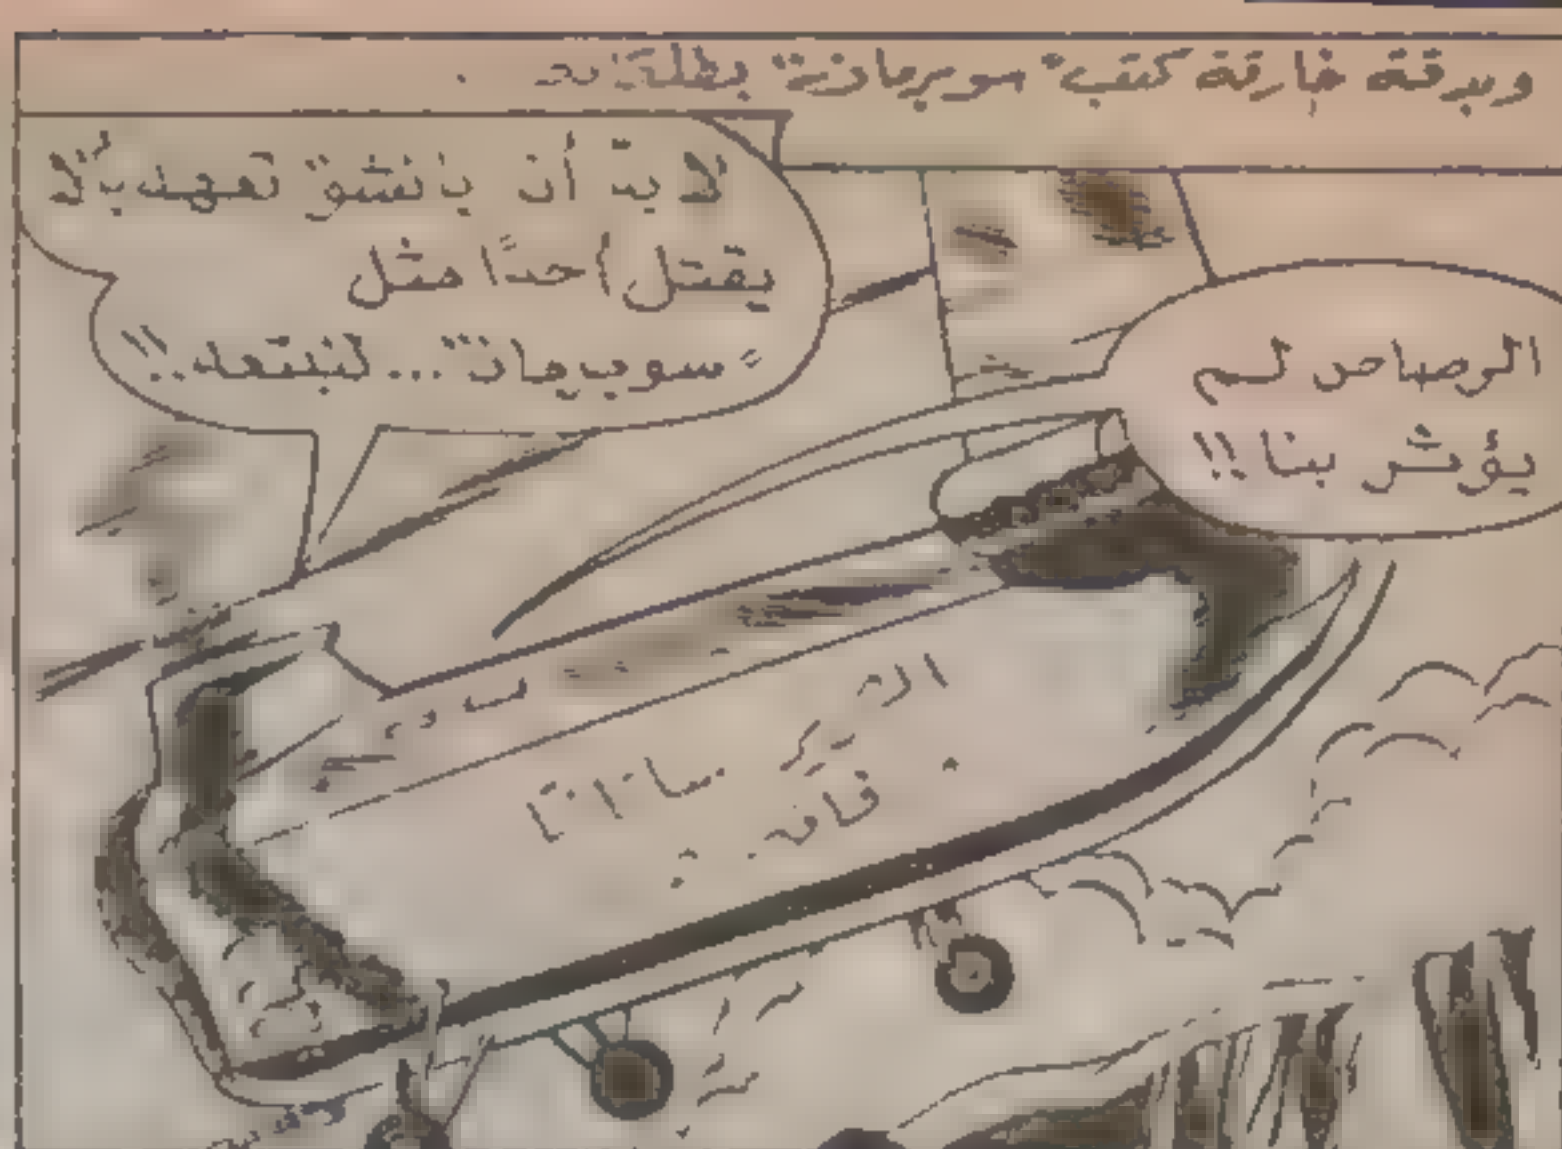 وبدقة خارقة كتب "سوبرمان" بطلقاته .
الرصاص لم
يؤثر بنا !!
لا بدّ أن يا نشو تعهد بألا
يقتل أحدًا مثل
"سوبرمان"... لنبتعد..!!